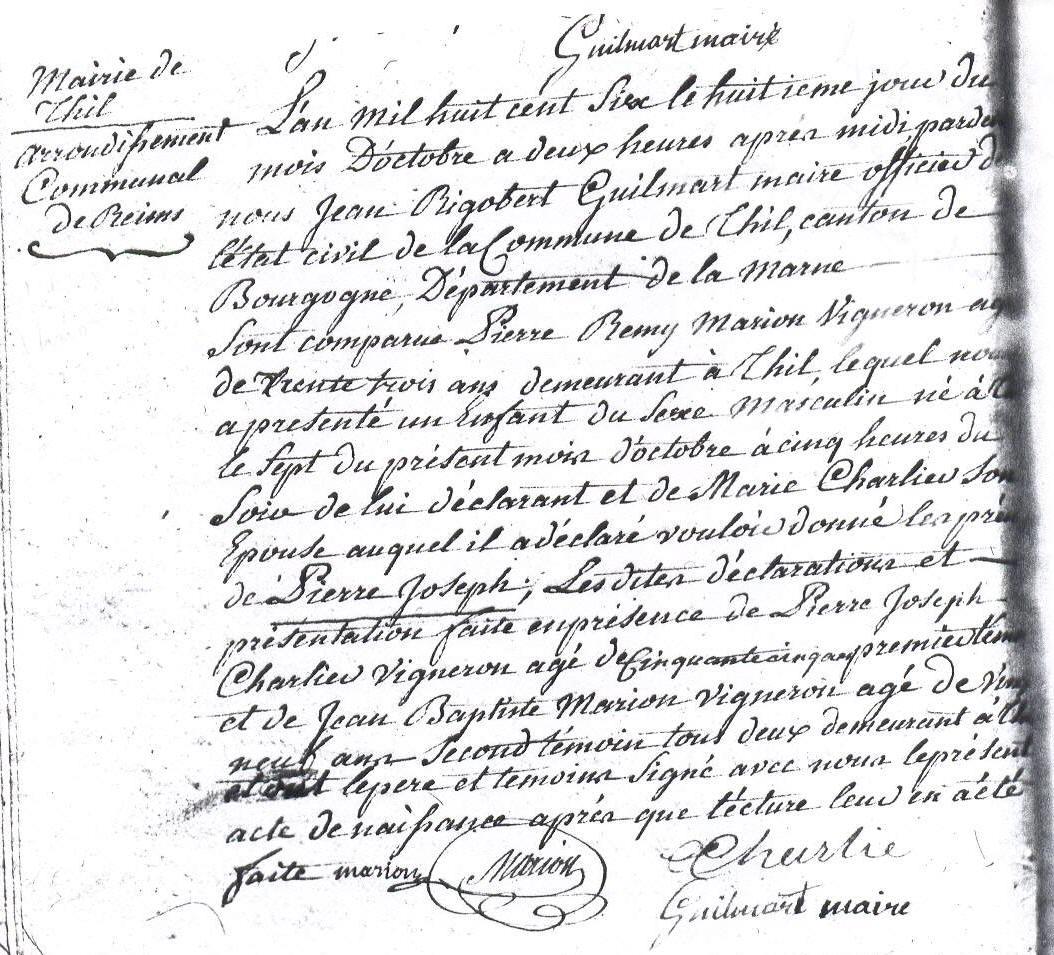 Guilmart maire
Mairie de
Thil
arrondissement
Communal
de Reims
L'an mil huit cent Six le huitieme jour du
mois D'octobre a deux heures après midi pardev
nous Jean Rigobert Guilmart maire officier de
l'état civil de la Commune de Thil, canton de
Bourgogne, Département de la marne
Sont comparue Pierre Remy Marion Vigneron ag
de trente trois ans demeurant à Thil, lequel nous
a presenté un Enfant du Sexe Masculin né à
le Sept du présent mois d'octobre à cinq heures du
Soir de lui déclarant et de Marie Charlier Son
Epouse auquel il a déclaré vouloir donné les prén
de Pierre Joseph, Les dites déclarations et
présentation faite en présence de Pierre Joseph
Charlier Vigneron agé de Cinquante cinq ans premier tém
et de Jean Baptiste Marion Vigneron agé de Vin
neuf ans Second témoin tous deux demeurant à
et ont le pere et temoins Signé avec nous le présent
acte de naissance après que lécture leur en à été
faite marion Marion Charlie
Guilmart maire